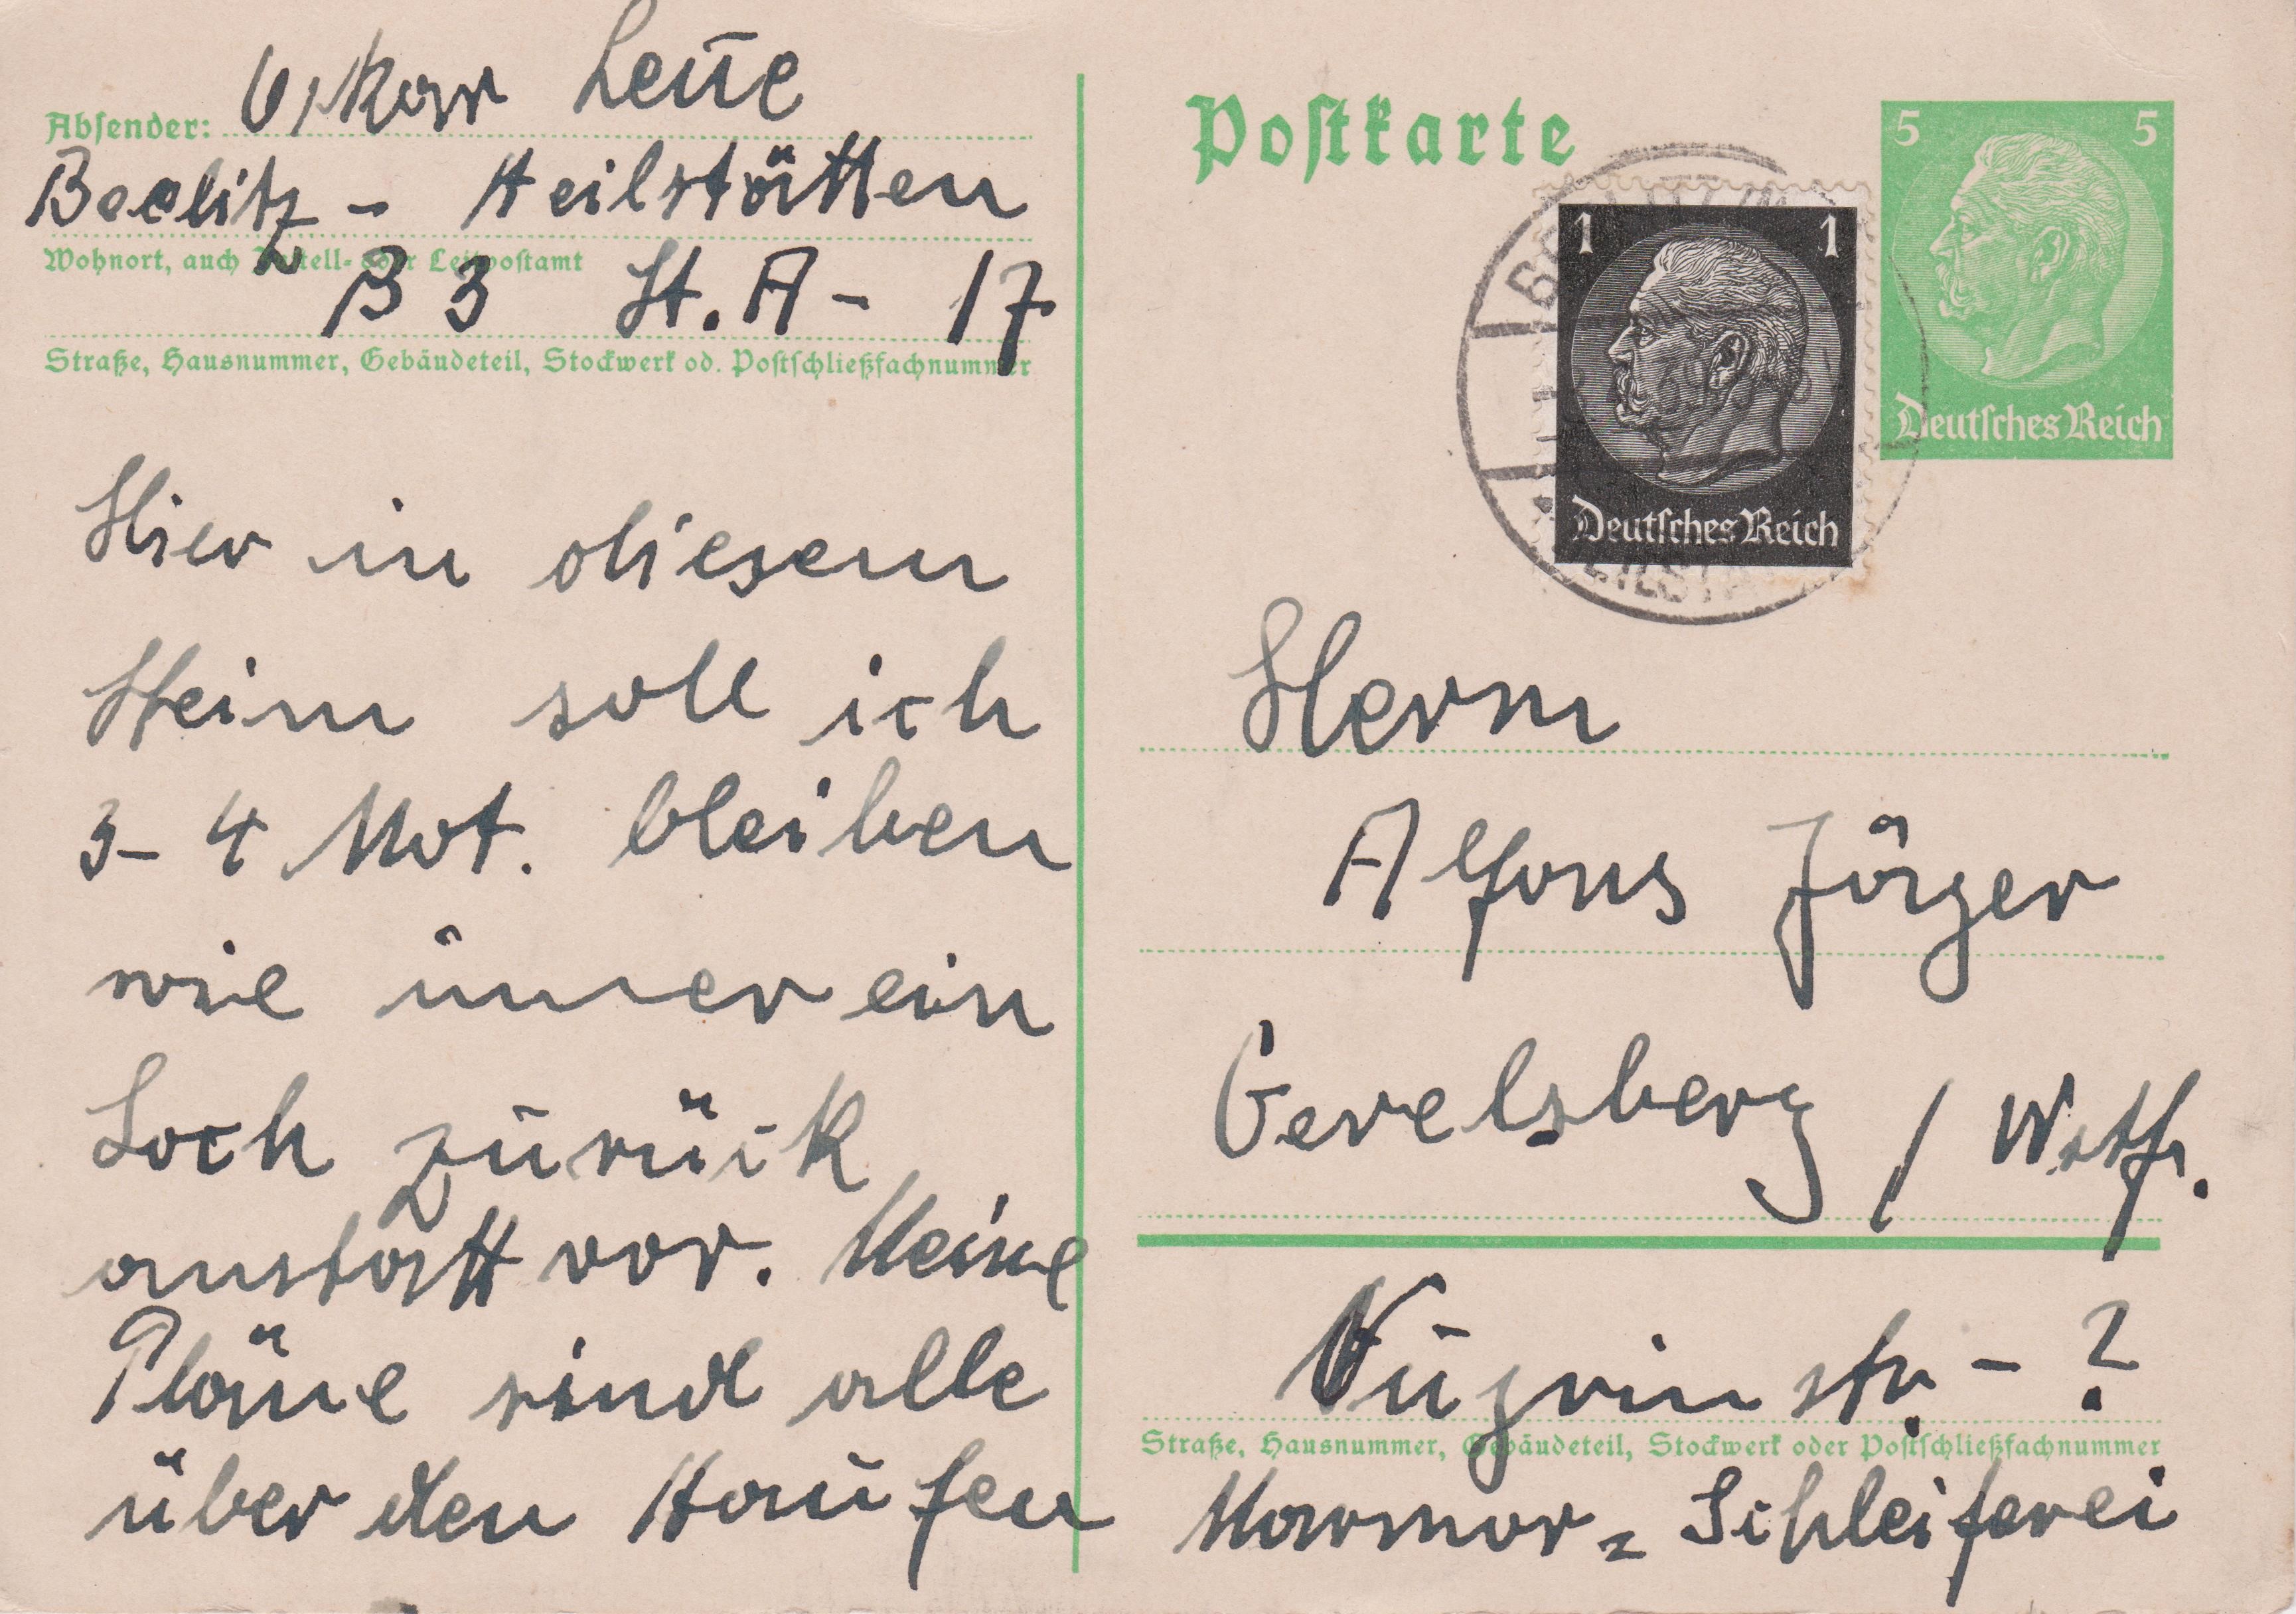 Absender: Oskar Leue
Beelitz - Heilstätten
Wohnort, auch Zustell- oder Leitpostamt
B 3 St. A - 17
Straße, Hausnummer, Gebäudeteil, Stockwerk od. Postschließfachnummer
Hier in diesem
Heim soll ich
3-4 Mot. bleiben
wie imer ein
Loch zurück
anstatt vor. Meine
Pläne sind alle
über den Haufen
Postkarte
5 5
Deutsches Reich
1 1
Deutsches Reich
Herrn
Alfons Jörger
Gevelsberg / Wstf.
str. - ?
Straße, Hausnummer, Gebäudeteil, Stockwerk oder Postschließfachnummer
Marmor = Schleiferei